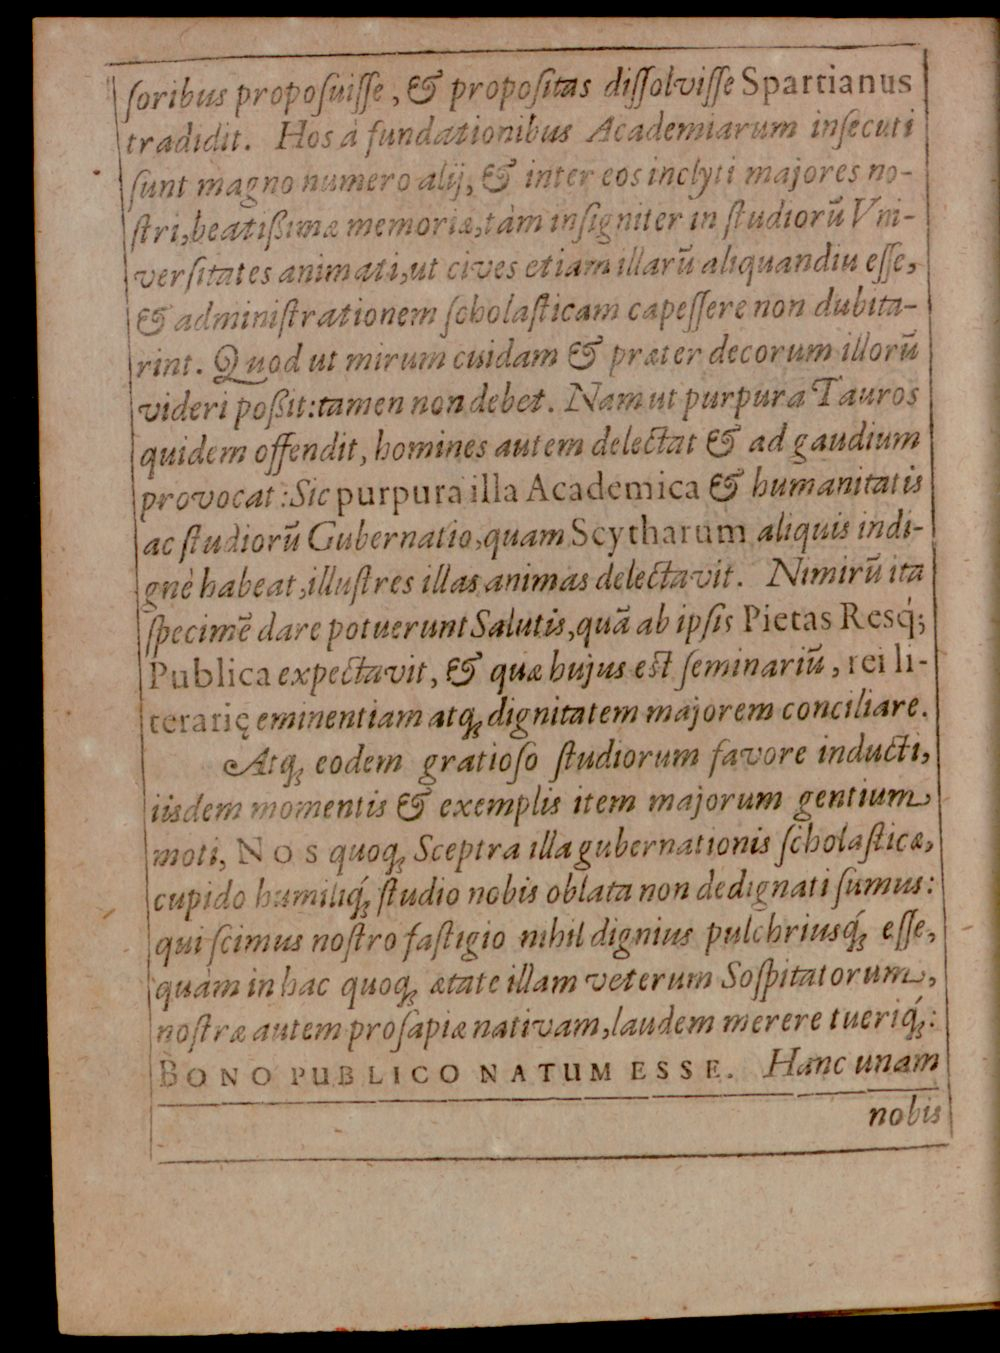 ſoribus propoſuiſſe, & propoſitas diſſolviſſe Spartianus
tradidit. Hos à fundationibus Academiarum inſecuti
ſunt magno numero alij, & inter eos inclyti majores no-
ſtri, beatißimæ memoriæ, tàm inſigniter in ſtudiorũ Vni-
verſitates animati, ut cives etiam illarũ aliquandiu eſſe,
& adminiſtrationem ſcholaſticam capeſſere non dubita-
rint. Quod ut mirum cuidam & præter decorum illorũ
videri poßit: tamen non debet. Nam ut purpura Tauros
quidem offendit, homines autem delectat & ad gaudium
provocat: Sic purpura illa Academica & humanitatis
ac ſtudiorũ Gubernatio, quam Scytharum aliquis indi-
gnè habeat, illuſtres illas animas delectavit. Nimirũ ita
ſpecimẽ dare potuerunt Salutis, quã ab ipſis Pietas Resq́;
Publica expectavit, & quæ hujus est ſeminariũ, rei li-
terarię eminentiam atq; dignitatem majorem conciliare.
Atq; eodem gratioſo ſtudiorum favore inducti,
iisdem momentis & exemplis item majorum gentium
moti, NOS quoq; Sceptra illa gubernationis ſcholaſticæ,
cupido humiliq́; ſtudio nobis oblata non dedignati ſumus:
qui ſcimus noſtro faſtigio nihil dignius pulchriusq́; eſſe,
quàm in hac quoq; ætate illam veterum Soſpitatorum,
noſtræ autem proſapiæ nativam, laudem merere tueriq́;:
BONO PUBLICO NATUM ESSE. Hanc unam
nobis